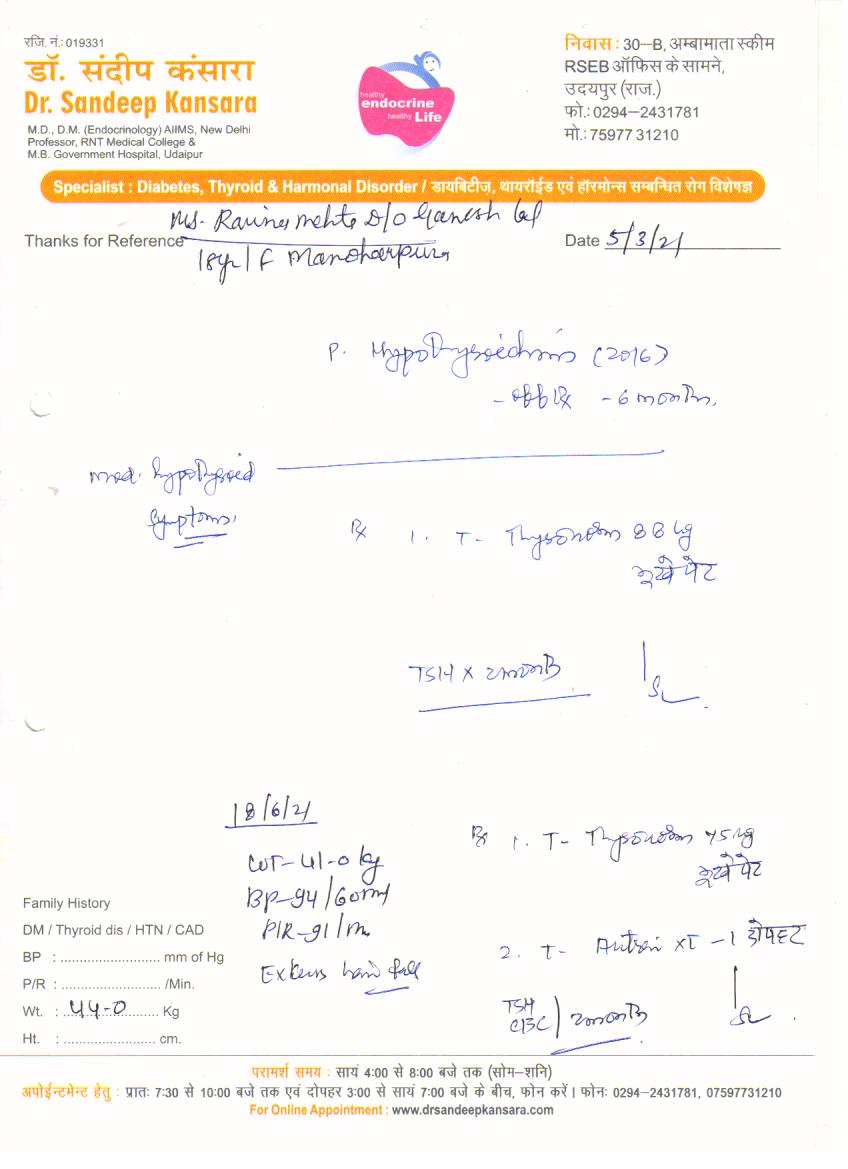 रजि. नं.: 019331
डॉ. संदीप कंसारा
Dr. Sandeep Kansara
M.D., D.M. (Endocrinology) AIIMS, New Delhi
Professor, RNT Medical College &
M.B. Government Hospital, Udaipur
healthy
endocrine
healthy Life
निवास : 30–B, अम्बामाता स्कीम
RSEB ऑफिस के सामने,
उदयपुर (राज.)
फो.: 0294–2431781
मो.: 75977 31210
Specialist : Diabetes, Thyroid & Harmonal Disorder / डायबिटीज़, थायरॉईड एवं हॉरमोन्स सम्बन्धित रोग विशेषज्ञ
Ms. Mehta D/O Ganesh
Thanks for Reference
Date 5/3/21
18yr/F Manoharpura
P. Hypothyroidism (2016)
- off Rx - 6 months.
Mod. hypothyroid
Symptoms.
Rx 1. T- Thyronorm 88 ug
भूखे पेट
TSH x 2 months
18/6/21
WT-41-0 kg
BP-94/60
P/R-91/m
Excess hair fall
Rx 1. T- Thyronorm 75 ug
भूखे पेट
2. T- XT -1 दोपहर
TSH
CBC / 2 months
Family History
DM / Thyroid dis / HTN / CAD
BP : .......................... mm of Hg
P/R : ......................... /Min.
Wt. : 44-0 Kg
Ht. : ........................ cm.
परामर्श समय : सायं 4:00 से 8:00 बजे तक (सोम–शनि)
अपोईन्टमेन्ट हेतु : प्रातः 7:30 से 10:00 बजे तक एवं दोपहर 3:00 से सायं 7:00 बजे के बीच, फोन करें। फोनः 0294–2431781, 07597731210
For Online Appointment : www.drsandeepkansara.com